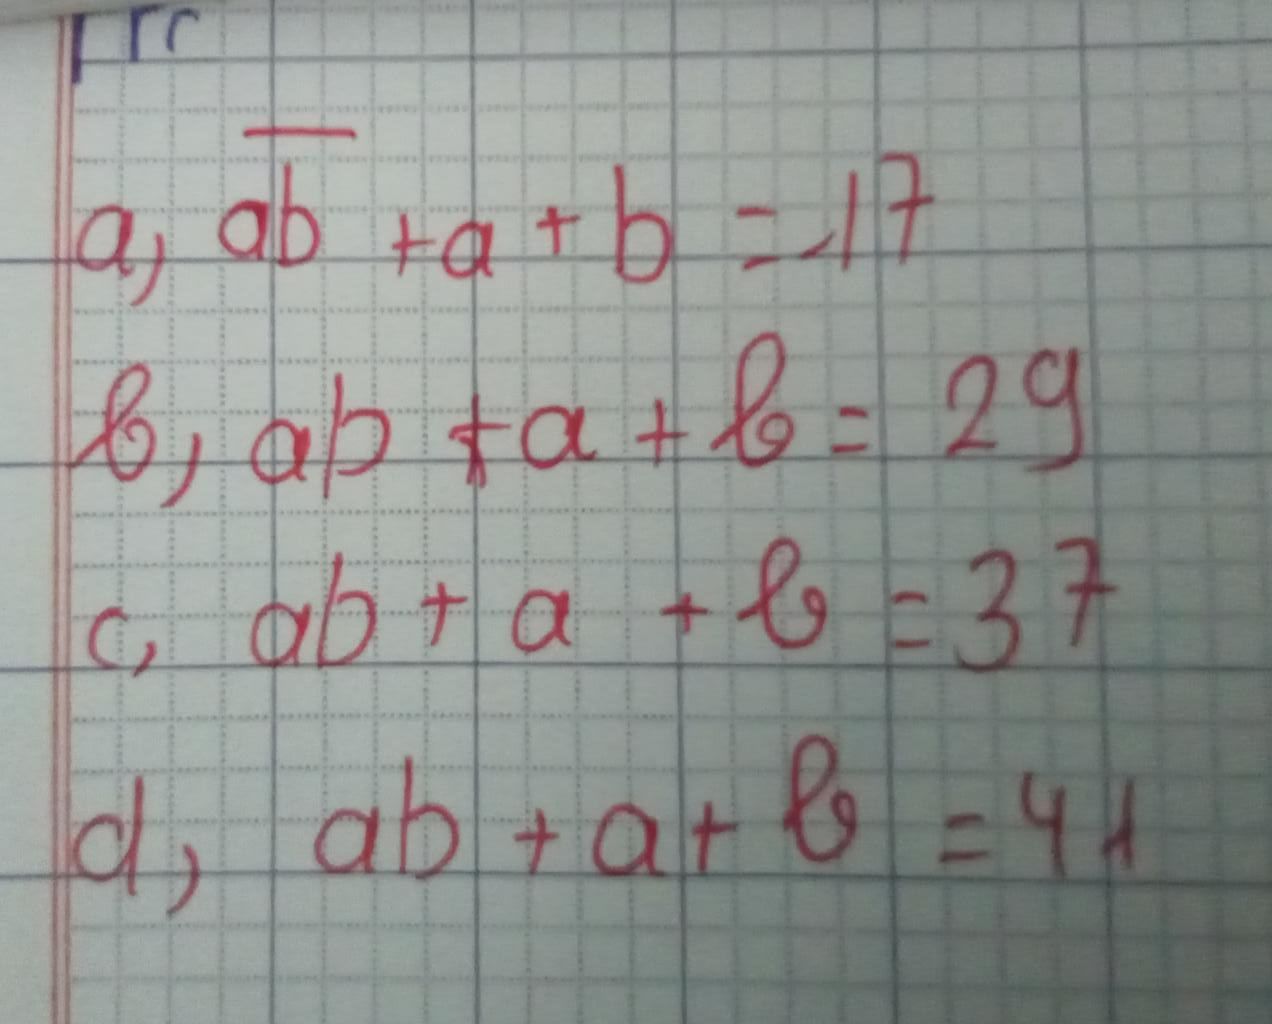 a, \overline{ab} + a + b = 17
b, ab + a + b = 29
c, ab + a + b = 37
d, ab + a + b = 41